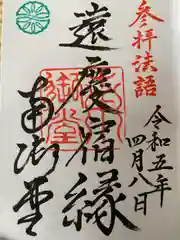 参拝法語
令和五年
四月八日
遠慶宿縁
南御堂